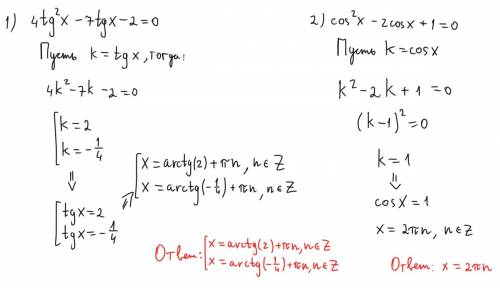 1) 4tg²x - 7tgx - 2 = 0
Пусть k = tgx, тогда:
4k² - 7k - 2 = 0
[ k = 2
k = -1/4
⇓
[ tgx = 2
tgx = -1/4
⇒ [ x = arctg(2) + πn, n ∈ Z
x = arctg(-1/4) + πn, n ∈ Z
Ответ: [ x = arctg(2) + πn, n ∈ Z
x = arctg(-1/4) + πn, n ∈ Z
2) cos²x - 2cosx + 1 = 0
Пусть k = cosx
k² - 2k + 1 = 0
(k - 1)² = 0
k = 1
⇓
cosx = 1
x = 2πn, n ∈ Z
Ответ: x = 2πn